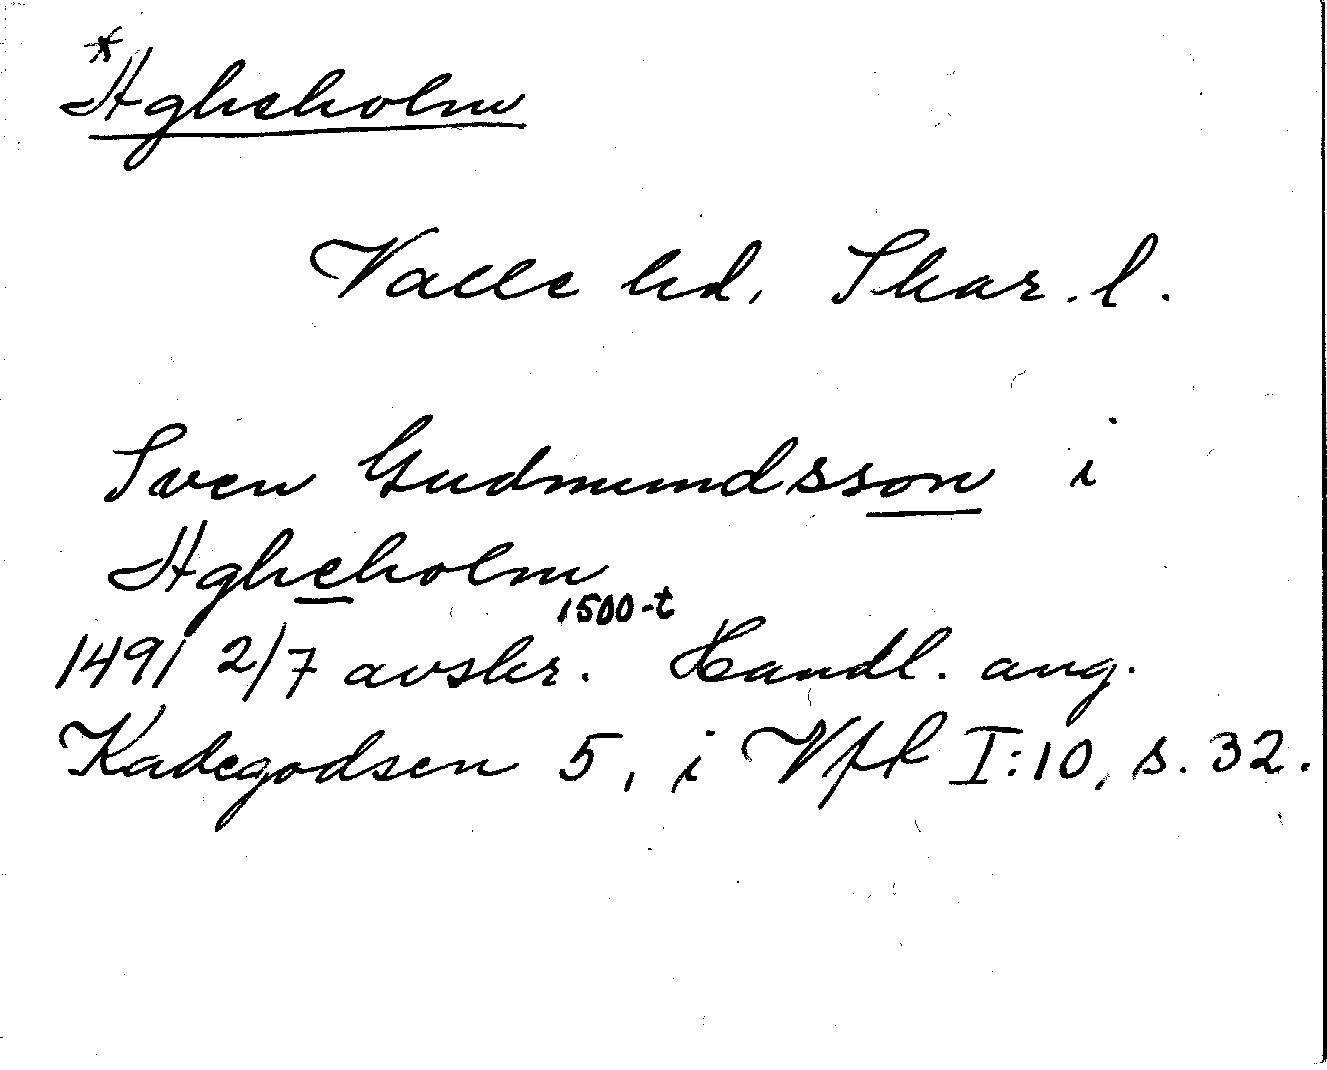 *Agheholm
Valle hd, Skar. l.
Sven Gudmundsson i
Agheholm
1500-t
1491 2/7 avskr. Handl. ang.
Kadegodsen 5, i Vfl I:10, s. 32.